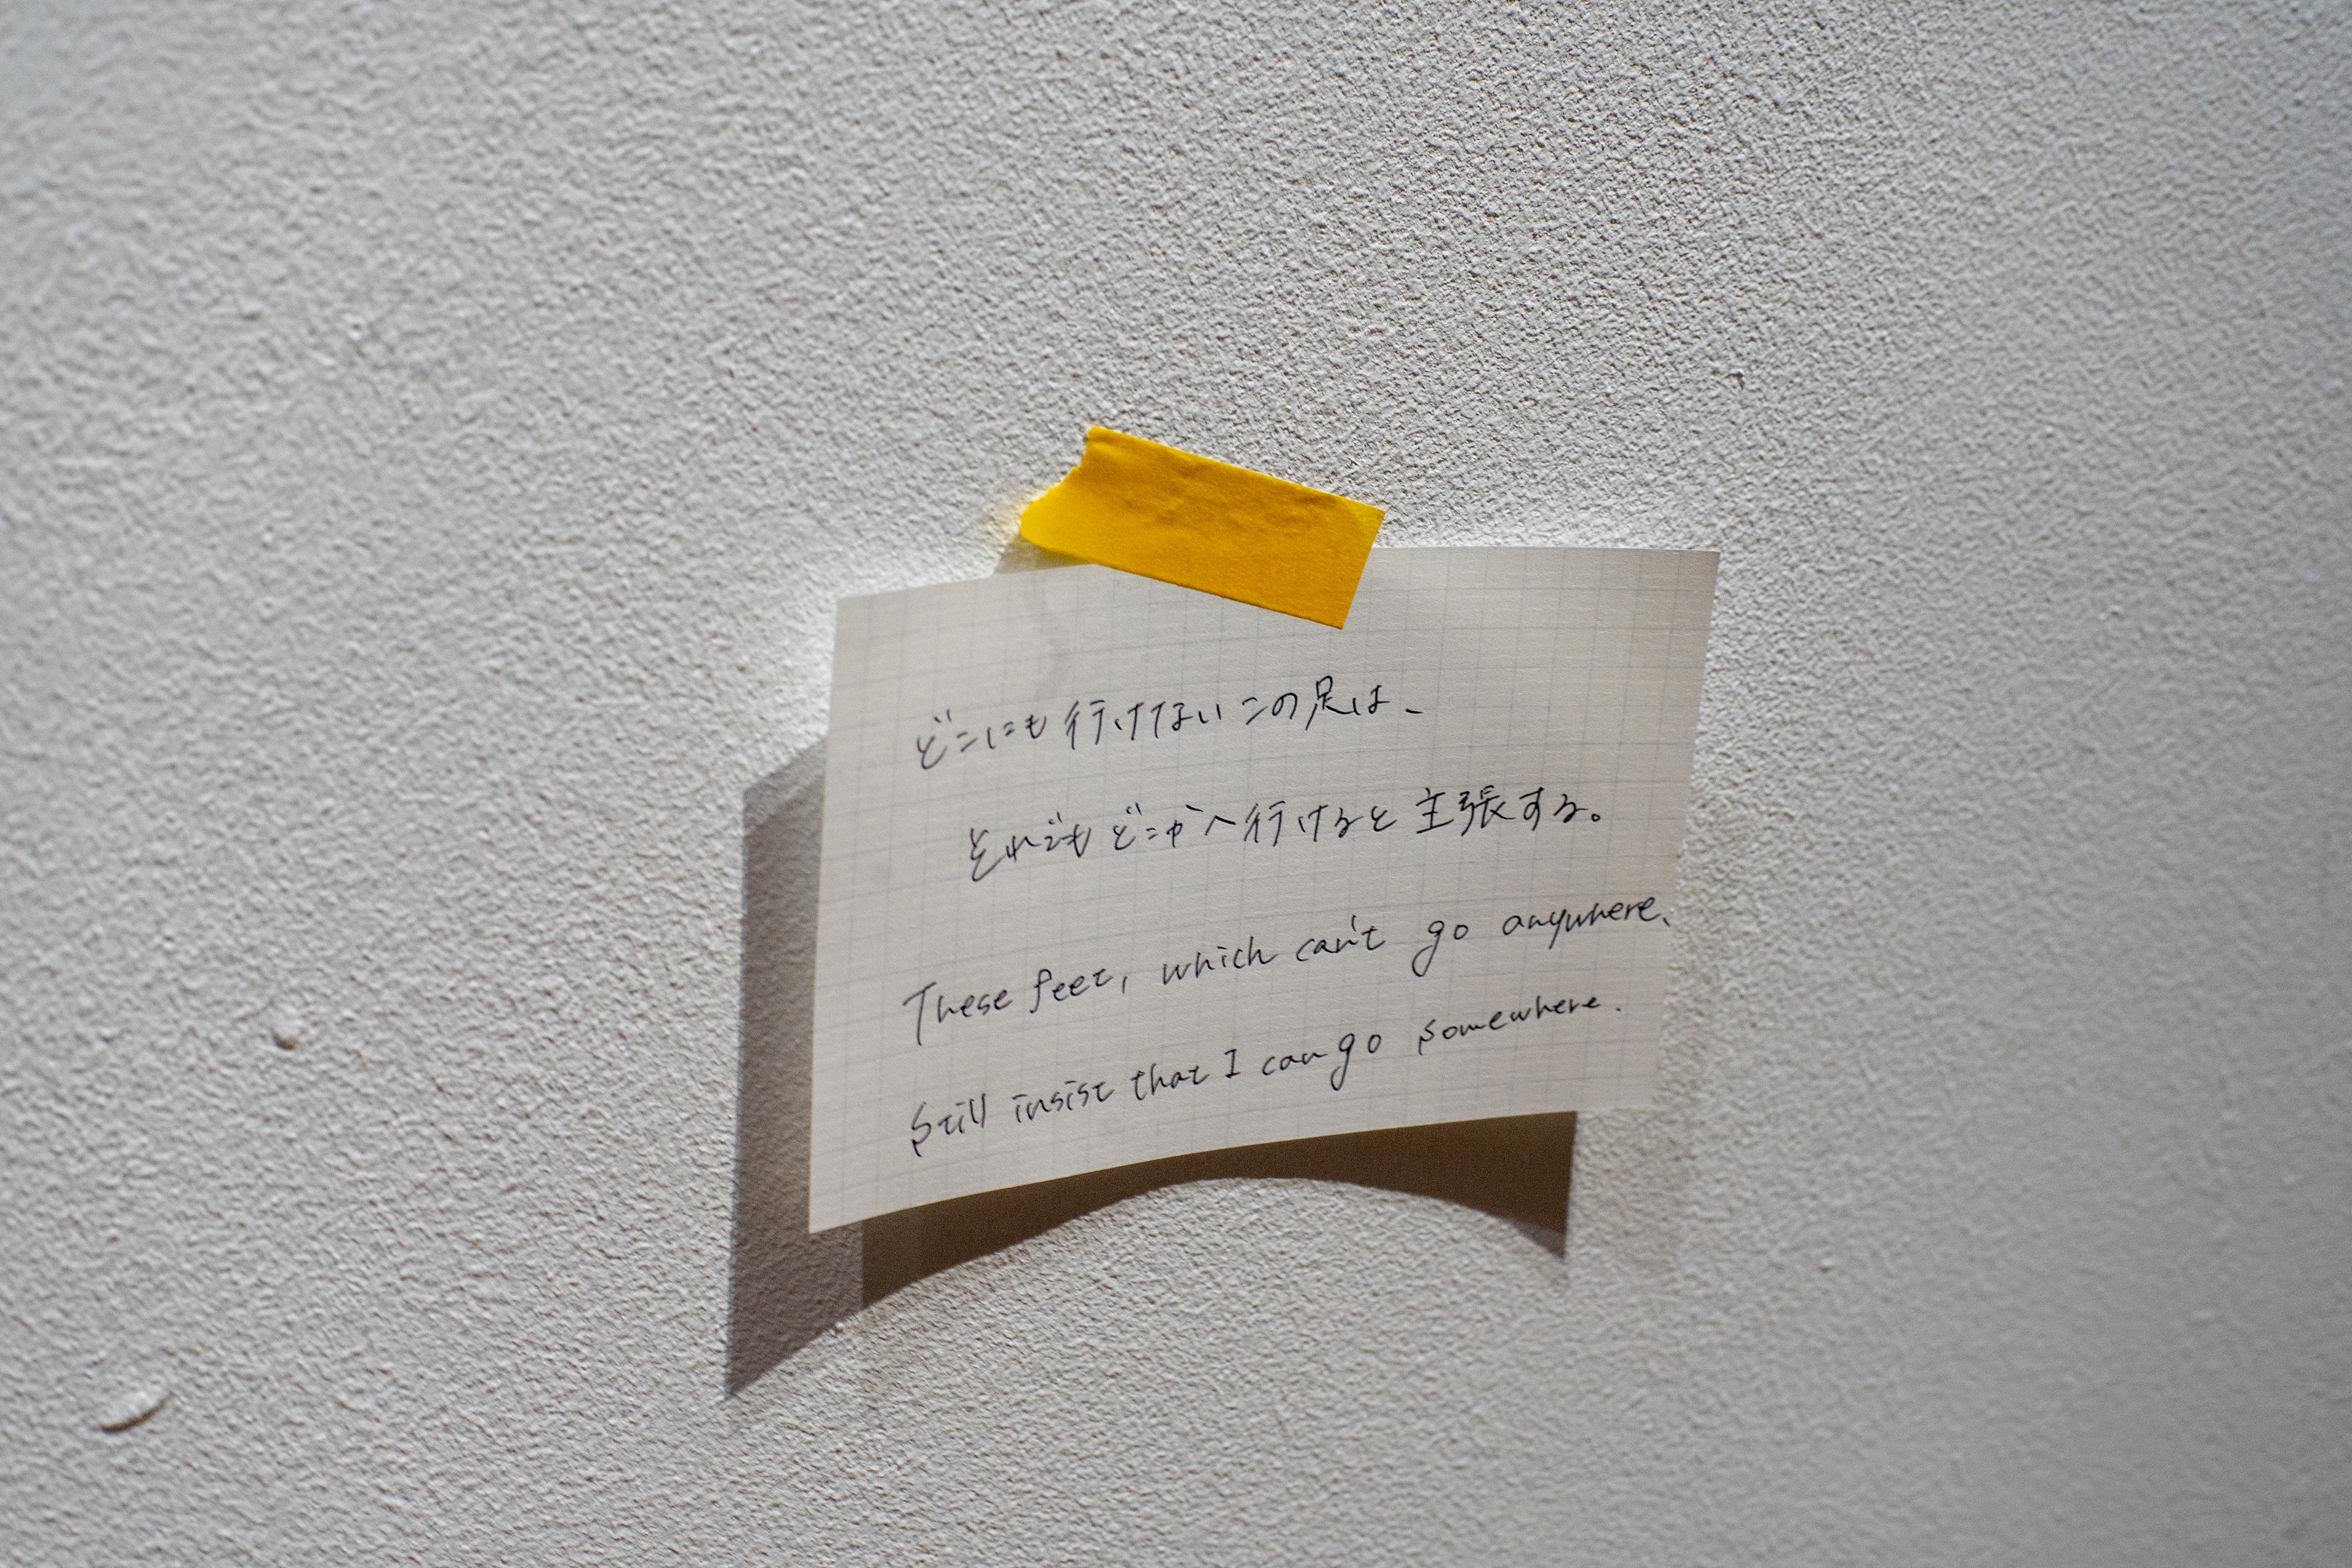 どこにも行けないこの足は、
それでもどこかへ行けると主張する。
These feet, which can't go anywhere,
Still insist that I can go somewhere.